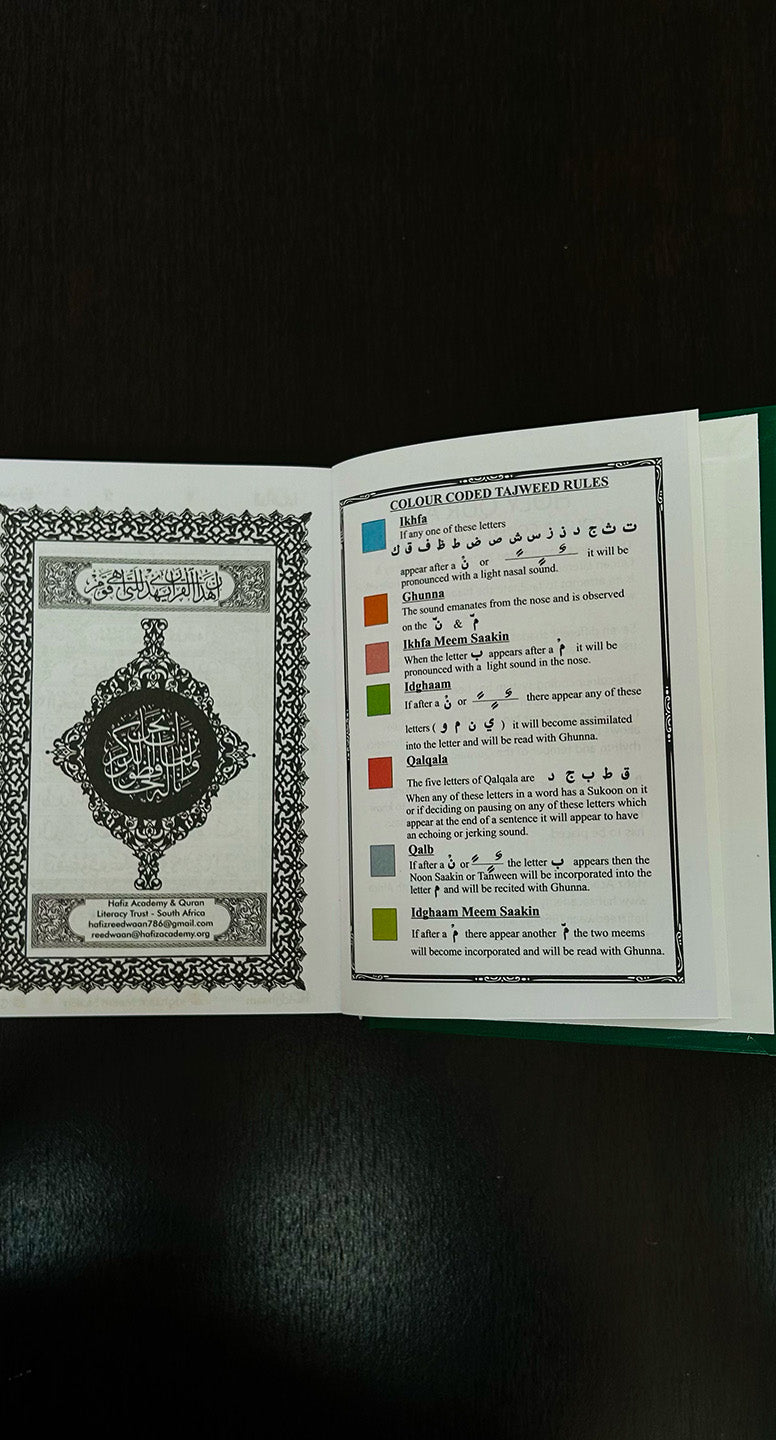 Hafiz Academy & Quran
Literacy Trust - South Africa
hafizreedwaan786@gmail.com
reedwaan@hafizacademy.org
COLOUR CODED TAJWEED RULES
Ikhfa
If any one of these letters
ت ث ج د ذ ز س ش ص ض ط ظ ف ق ك
appear after a نْ or ـًـٍـٌ it will be
pronounced with a light nasal sound.
Ghunna
The sound emanates from the nose and is observed
on the نّ & مّ
Ikhfa Meem Saakin
When the letter ب appears after a مْ it will be
pronounced with a light sound in the nose.
Idghaam
If after a نْ or ـًـٍـٌ there appear any of these
letters ( ي ن م و ) it will become assimilated
into the letter and will be read with Ghunna.
Qalqala
The five letters of Qalqala are ق ط ب ج د
When any of these letters in a word has a Sukoon on it
or if deciding on pausing on any of these letters which
appear at the end of a sentence it will appear to have
an echoing or jerking sound.
Qalb
If after a نْ or ـًـٍـٌ the letter ب appears then the
Noon Saakin or Tanween will be incorporated into the
letter م and will be recited with Ghunna.
Idghaam Meem Saakin
If after a مْ there appear another مّ the two meems
will become incorporated and will be read with Ghunna.